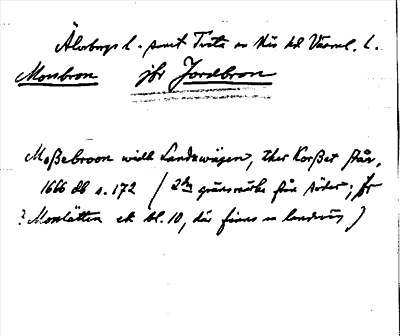 Älvsborgs l. samt Tveta o Näs hd Värml. l.
Mossbron jfr Jordbron
Moßebroon widh Landzwägen, ther Korßet står,
1666 db s. 172 ( 2dra gränsmärke från söder; jfr
? Mosslätten ek bl. 10, där finns en landsväg )